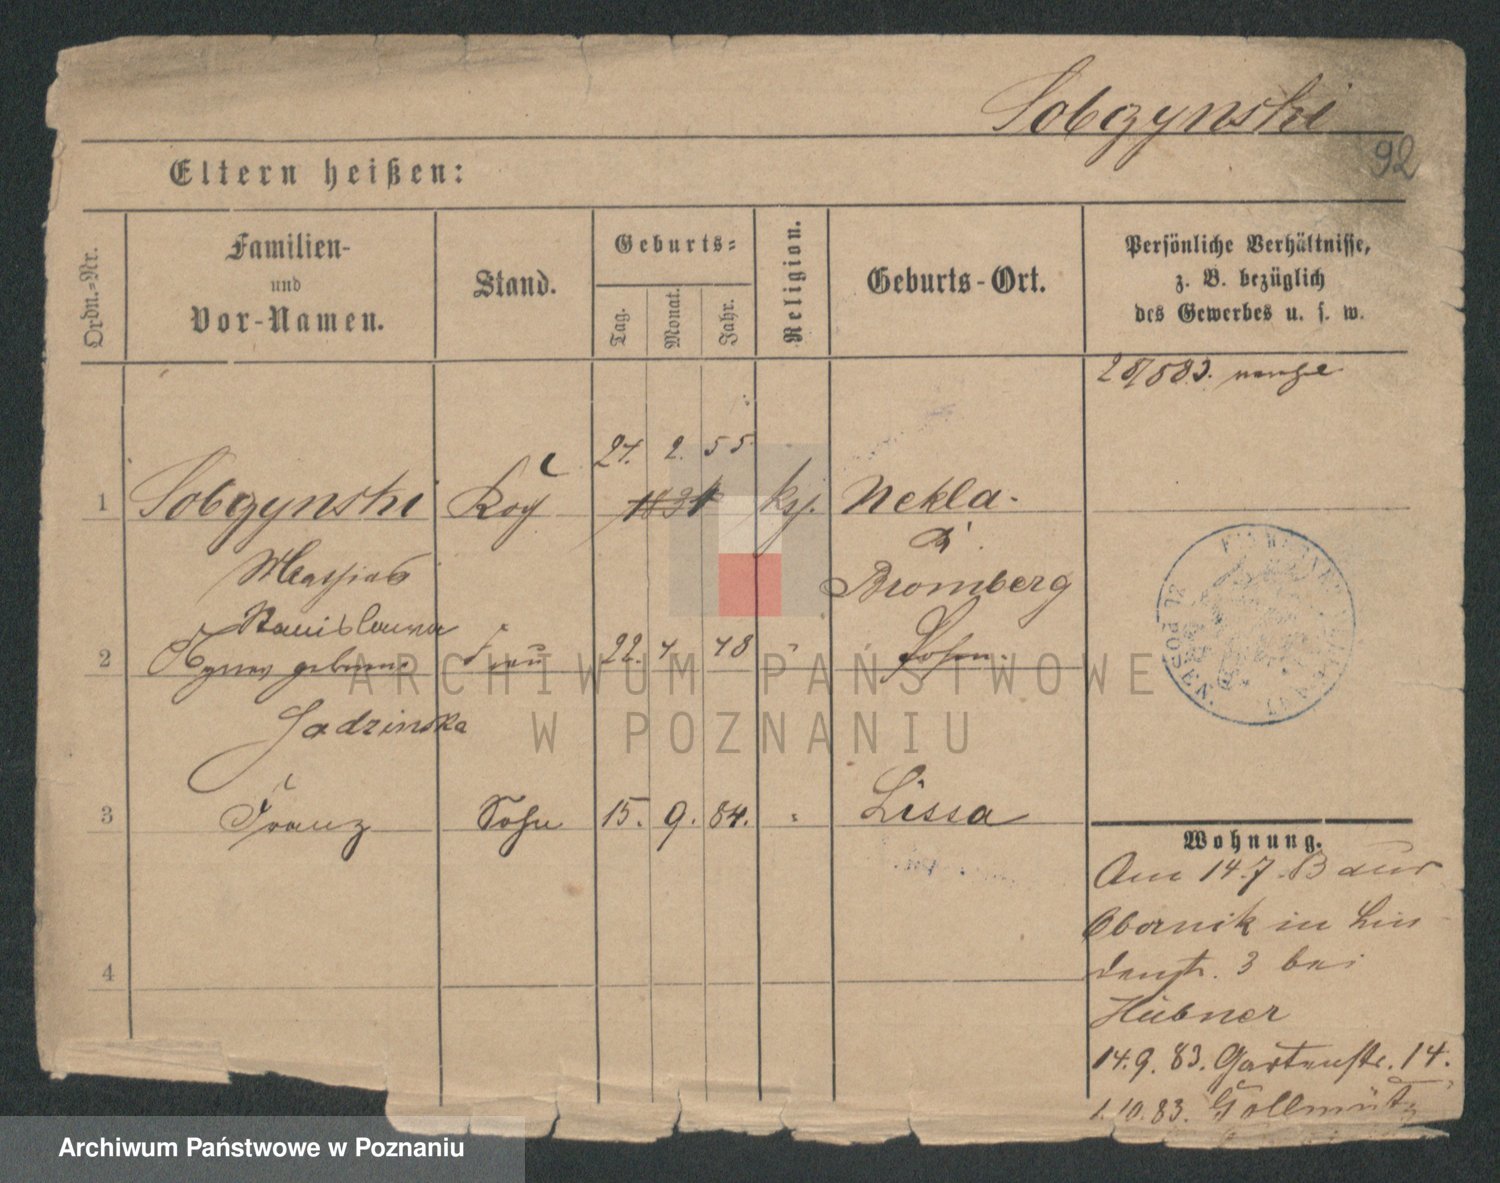 Sobczynski
92
Eltern heißen:
Ordn.-Nr.
Familien-
und
Vor-Namen.
Stand.
Geburts-
Tag.
Monat.
Jahr.
Religion.
Geburts-Ort.
Persönliche Verhältnisse,
z. B. bezüglich
des Gewerbes u. s. w.
28/5 83.
24. 2. 55
1 Sobczynski 1831 Nekla
Kr
Mathias
Bromberg
Stanislawa
2 Agnes geborene Frau 22. 4. 48 " Posen
Jadzinska
3 Franz Sohn 15. 9. 84. " Lissa
4
POSEN
Wohnung.
Am 14.7.83 aus
Obornik in Lin
denstr. 3 bei
Hübner
14.9.83. Gartenstr. 14.
1.10.83. Gollmütz
ARCHIWUM PAŃSTWOWE
W POZNANIU
Archiwum Państwowe w Poznaniu